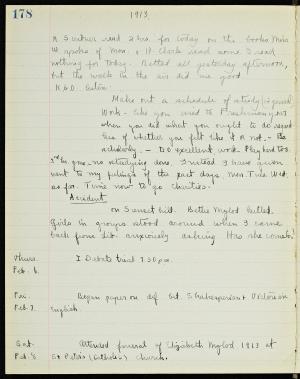 178
1913
read 2 hrs. for today on the books Miss
W spoke of Mon. + read some I read
nothing for today. Rested all yesterday afternoon,
but the walk in the air did me good
Make out a schedule of study &
Work - like you used to Freshman yr.
when you did what you ought to do
of whether you felt like it or not, - the
scholarly. - Do excellent work Play hard too.
no studying done. Instead I have given
vent to my feelings of the past days Mon Tues Wed.
so far. Time now to go
Accident
on Sunset hill. Bettie Mylod killed.
Girls in groups stood around when I came
back from Lib. anxiously asking Has she come to?
Thurs.
Feb. 6.
I Debate trial 7.30 p.m.
Fri.
Feb. 7.
Began paper on dif. bet. Shakesperian + Victorian
English.
Sat.
Feb. 8
Attended funeral of Elizabeth Mylod 1913 at
St Peter's (Catholic) Church.